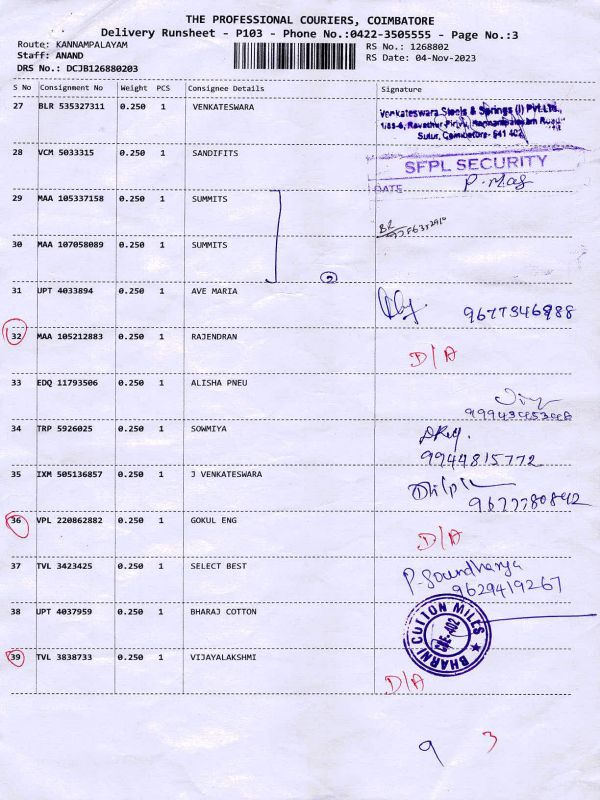 THE PROFESSIONAL COURIERS, COIMBATORE
Delivery Runsheet - P103 - Phone No.:0422-3505555 - Page No.:3
Route: KANNAMPALAYAM
RS No.: 1268802
Staff: ANAND
RS Date: 04-Nov-2023
DRS No.: DCJB126880203
S No Consignment No Weight PCS Consignee Details Signature
27 BLR 535327311 0.250 1 VENKATESWARA
Venkateswara Steels & Springs (I) Pvt.Ltd.,
Sulur, Coimbatore- 641 402
28 VCM 5033315 0.250 1 SANDIFITS
SFPL SECURITY
DATE
29 MAA 105337158 0.250 1 SUMMITS
30 MAA 107058089 0.250 1 SUMMITS
2
31 UPT 4033894 0.250 1 AVE MARIA
9677346988
32 MAA 105212883 0.250 1 RAJENDRAN
D/A
33 EDQ 11793506 0.250 1 ALISHA PNEU
34 TRP 5926025 0.250 1 SOWMIYA
9944815772
35 IXM 505136857 0.250 1 J VENKATESWARA
9677780842
36 VPL 220862882 0.250 1 GOKUL ENG
D/A
37 TVL 3423425 0.250 1 SELECT BEST
P. Soundharya
9629419267
38 UPT 4037959 0.250 1 BHARAJ COTTON
BHARNI COTTON MILLS
CBE-402
39 TVL 3838733 0.250 1 VIJAYALAKSHMI
D/A
9 3